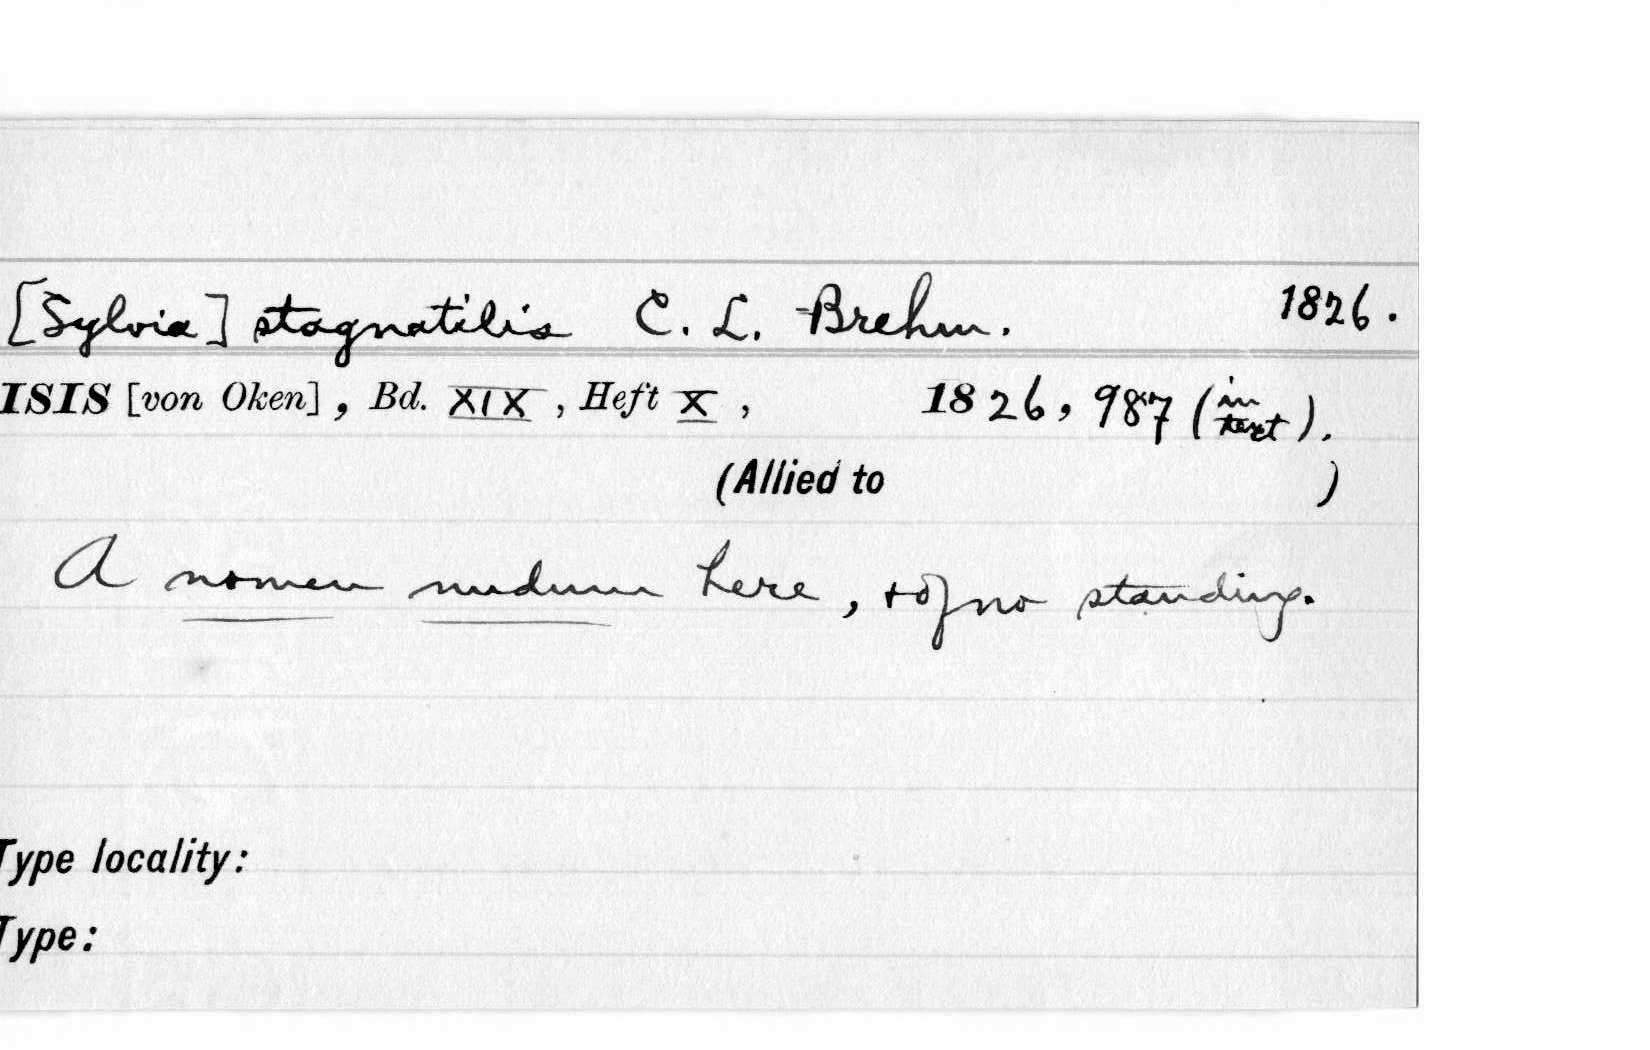 [Sylvia] stagnatilis C. L. Brehm. 1826.
ISIS [von Oken], Bd. XIX, Heft X, 1826, 987 (in text).
(Allied to )
A nomen nudum here, + of no standing.
Type locality:
Type: